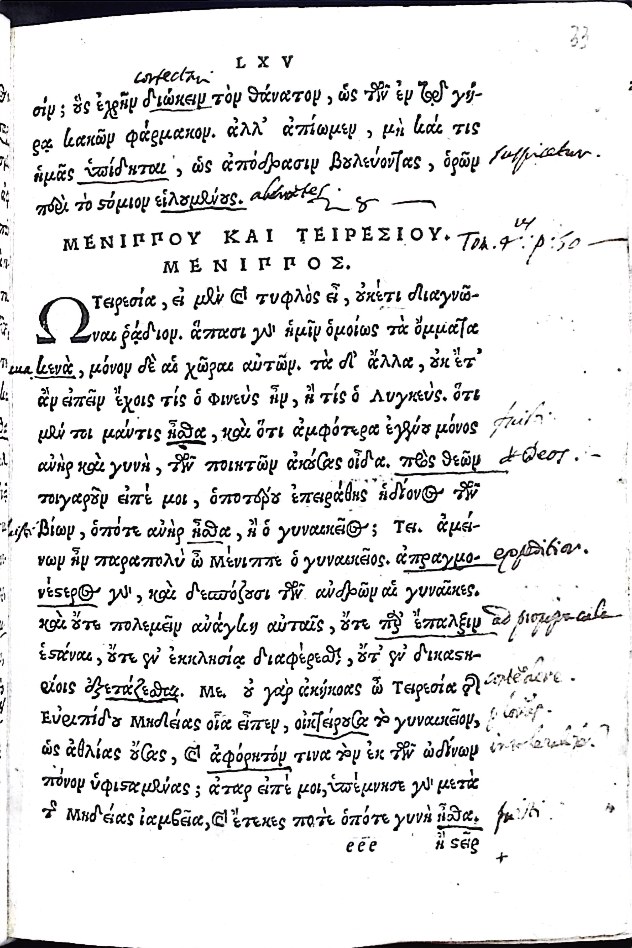 33
L X V
σίν; οὓς ἐχρῆν διώκειν τὸν θάνατον, ὡς τῶν ἐν τῷ γή-
ρᾳ κακῶν φάρμακον. ἀλλ' ἀπίωμεν, μὴ καί τις
ἡμᾶς ὑπίδηται, ὡς ἀπόδρασιν βουλεύοντας, ὁρῶν
περὶ τὸ στόμιον εἱλουμένους.
ΜΕΝΙΠΠΟΥ ΚΑΙ ΤΕΙΡΕΣΙΟΥ.
ΜΕΝΙΠΠΟΣ.
Ω Τειρεσία, εἰ μὲν καὶ τυφλὸς εἶ, οὐκέτι διαγνῶ-
ναι ῥᾴδιον. ἅπασι γὰρ ἡμῖν ὁμοίως τὰ ὄμματα
κενὰ, μόνον δὲ αἱ χῶραι αὐτῶν. τὰ δ' ἄλλα, οὐκ ἔτ'
ἂν εἰπεῖν ἔχοις τίς ὁ Φινεὺς ἦν, ἢ τίς ὁ Λυγκεύς. ὅτι
μέν τοι μάντις ἦσθα, καὶ ὅτι ἀμφότερα ἐγένου μόνος
ἀνὴρ καὶ γυνὴ, τῶν ποιητῶν ἀκούσας οἶδα. πρὸς θεῶν
τοιγαροῦν εἰπέ μοι, ὁποτέρου ἐπειράθης ἡδίονος τῶν
βίων, ὁπότε ἀνὴρ ἦσθα, ἢ ὁ γυναικεῖος; Τει. ἀμεί-
νων ἦν παραπολὺ ὦ Μένιππε ὁ γυναικεῖος. ἀπραγμο-
νέστερος γὰρ, καὶ δεσπόζουσι τῶν ἀνδρῶν αἱ γυναῖκες.
καὶ οὔτε πολεμεῖν ἀνάγκη αὐταῖς, οὔτε παρ' ἔπαλξιν
ἑστάναι, οὔτε ἐν ἐκκλησίᾳ διαφέρεσθαι, οὔτ' ἐν δικαστη-
ρίοις ἐξετάζεσθαι. Με. οὐ γὰρ ἀκήκοας ὦ Τειρεσία τῆς
Εὐριπίδου Μηδείας οἷα εἶπεν, οἰκτείρουσα τὸ γυναικεῖον,
ὡς ἀθλίας οὔσας, καὶ ἀφόρητόν τινα τὸν ἐκ τῶν ὠδίνων
πόνον ὑφισταμένας; ἀτὰρ εἰπέ μοι, ὑπέμνησε γάρ με τὰ
τῆς Μηδείας ἰαμβεῖα, καὶ ἔτεκες ποτὲ ὁπότε γυνὴ ἦσθα.
eee ἢ στεῖρ